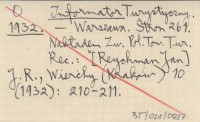 O Informator Turystyczny.
1932. — Warszawa. Stron 261.
Nakładem Zw. Pol. Tow. Tur.
Rec.: "[Reychman Jan]
J. R., Wierchy (Kraków) 10
(1932): 210-211.